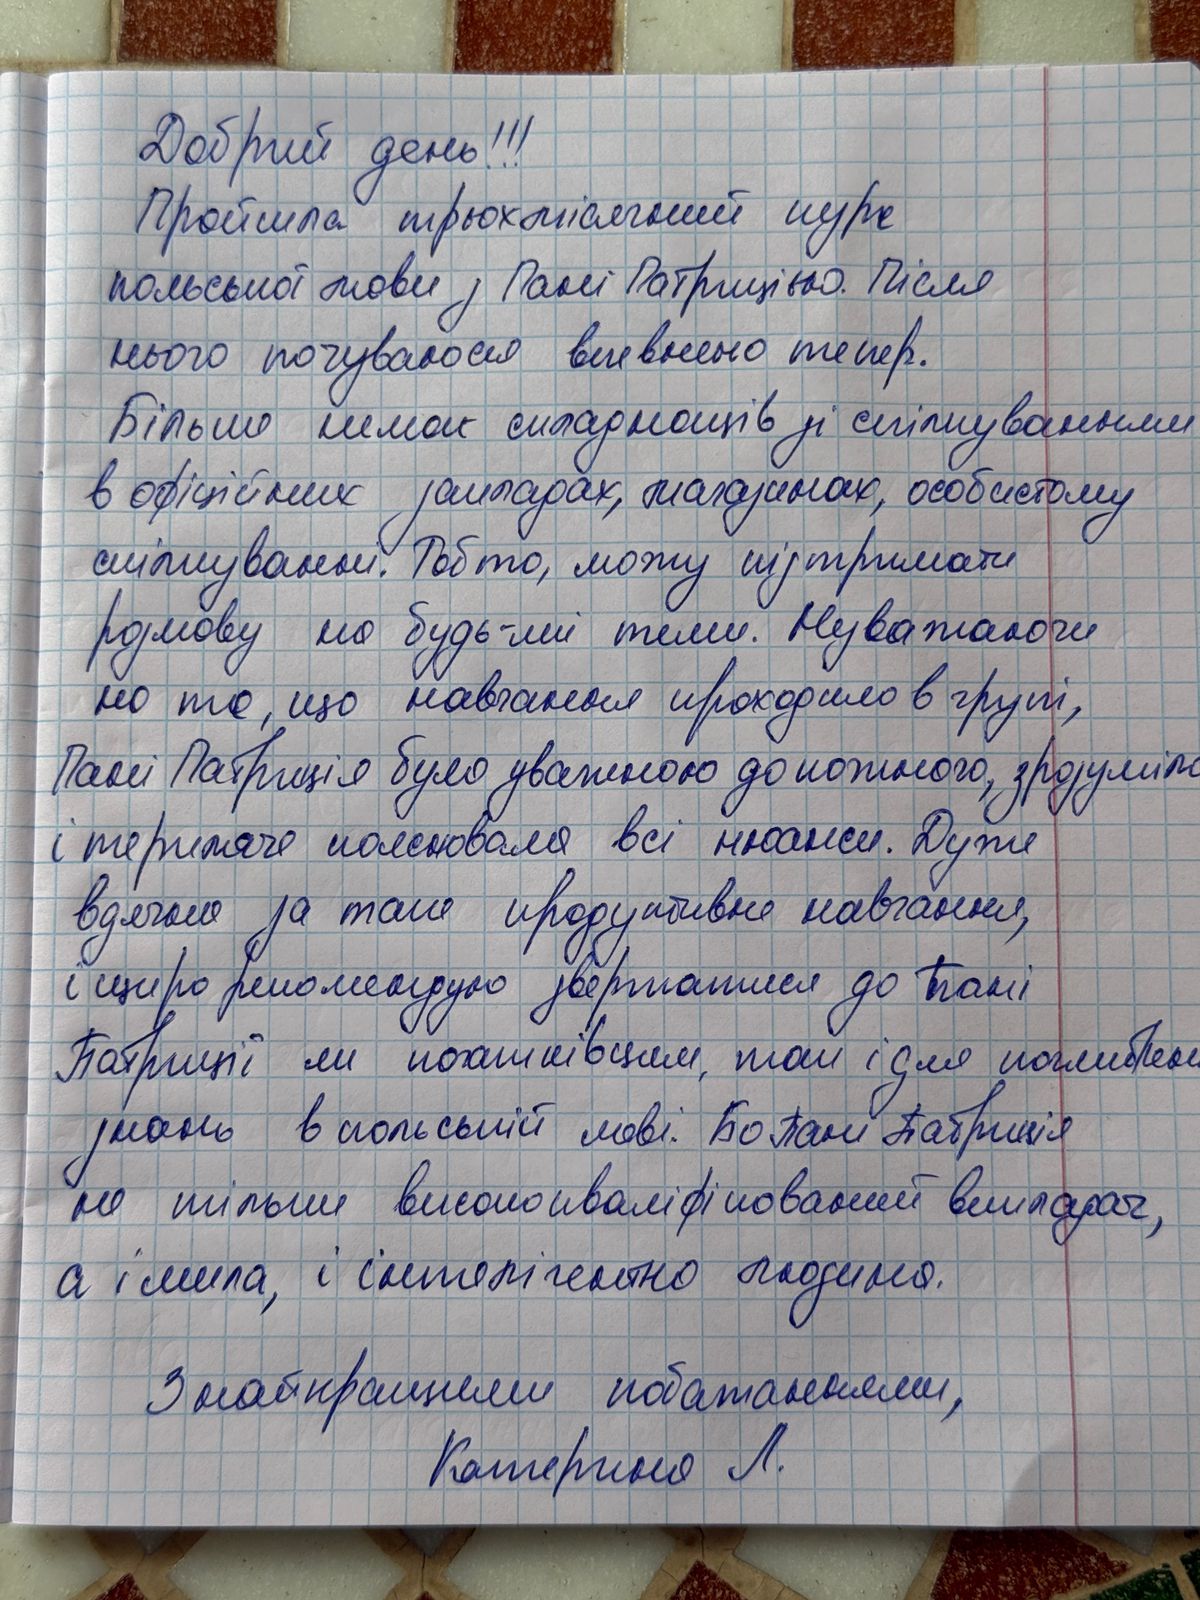 Добрий день!!!
Пройшла трьохмісячний курс
польської мови з Пані Патрицією. Після
нього почуваюся впевнено тепер.
Більше немає складнощів зі спілкуванням
в офіційних закладах, магазинах, особистому
спілкуванні. Тобто, можу підтримати
розмову на будь-які теми. Незважаючи
на те, що навчання проходило в групі,
Пані Патриція була уважною до кожного, зрозуміло
і терпляче пояснювала всі нюанси. Дуже
вдячна за таке продуктивне навчання,
і щиро рекомендую звертатися до Пані
Патриції як початківцям, так і для поглиблення
знань в польській мові. Бо Пані Патриція
не тільки висококваліфікований викладач,
а і мила, і інтелігентна людина.
З найкращими побажаннями,
Катерина Л.